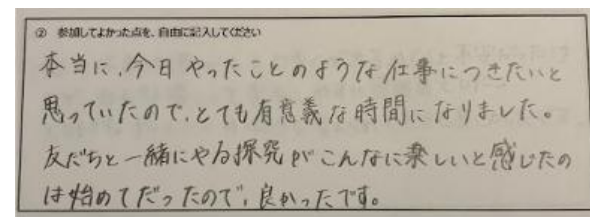 ② 参加してよかった点を、自由に記入してください
本当に、今日やったことのような仕事につきたいと
思っていたので、とても有意義な時間になりました。
友だちと一緒にやる探究がこんなに楽しいと感じたの
は始めてだったので、良かったです。